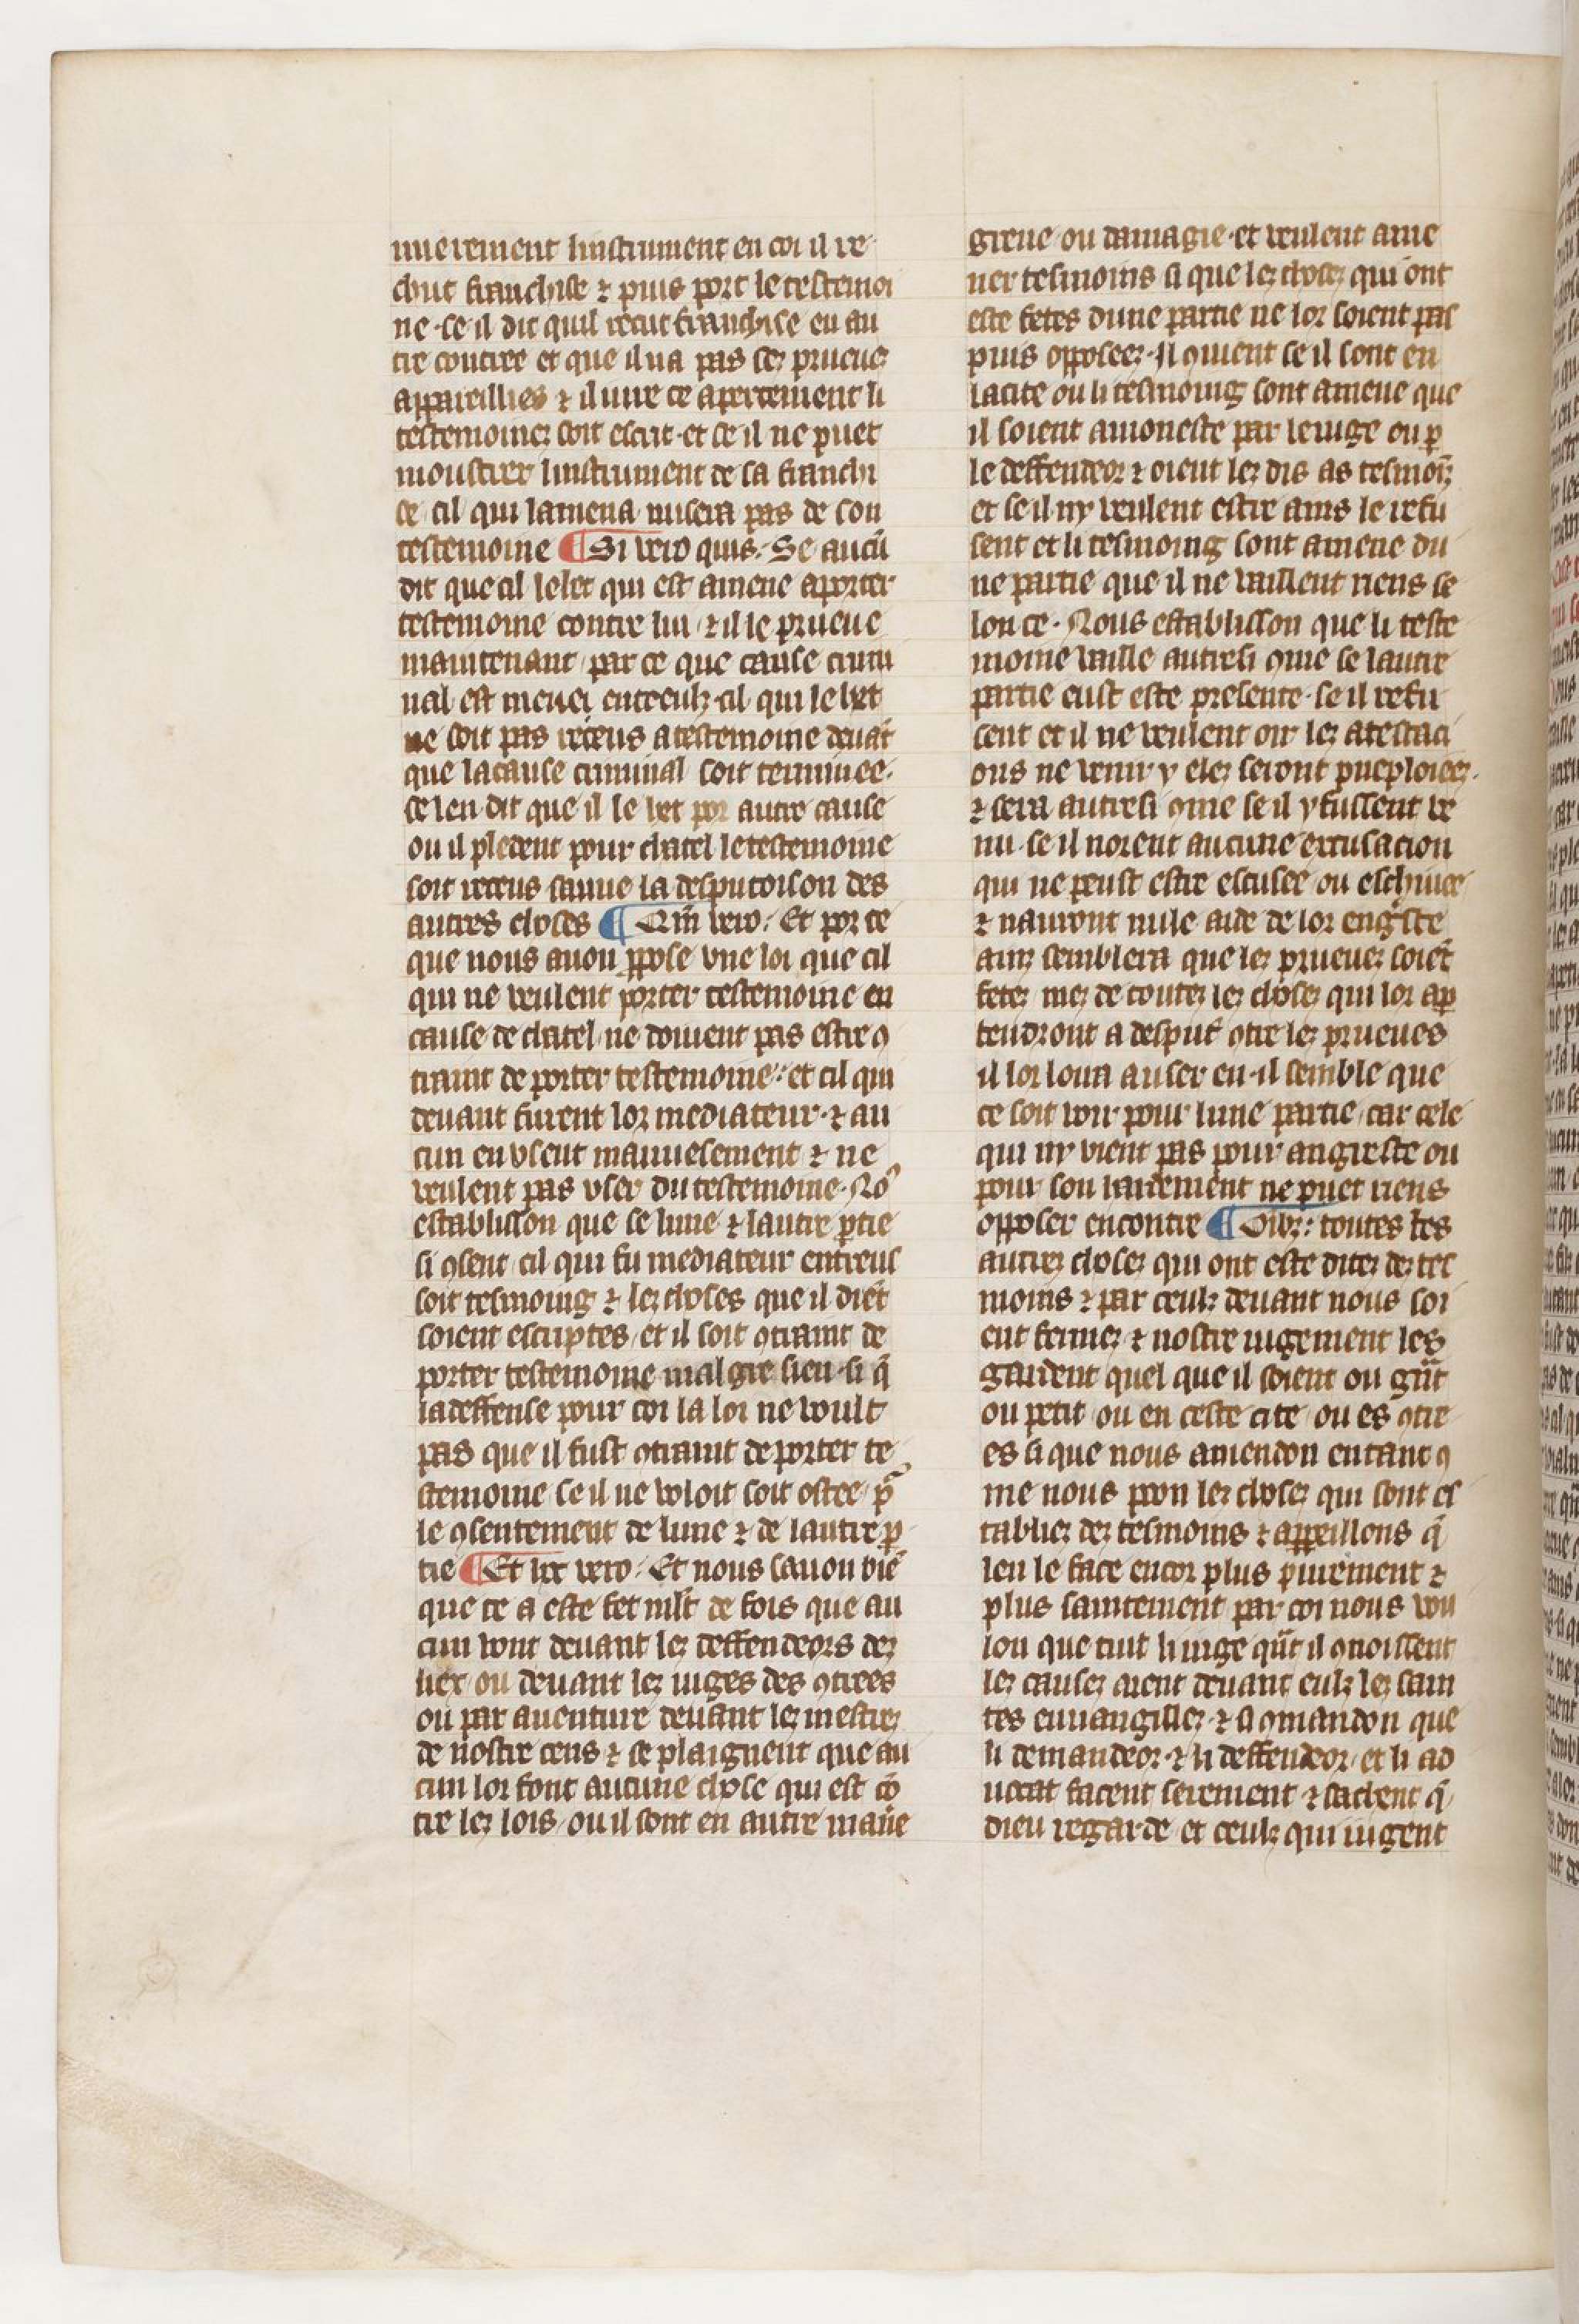 muerement linstrument en coi il re
chut franchise ⁊ puis port le testemoi
ne · se il dit quil recut franchise en au
tre contree et que il na pas sez prueuez
appareilliés ⁊ il iure ce apertement li
testemoinez soit escrit · et se il ne puet
moustrer linstrument de sa franchi
se cil qui lamena nusera pas de son
testemoine ¶ Si vero quis · Se aucū
dit que cil le het qui est amene a porter
testemoine contre lui ⁊ il le prueue
maintenant par ce que cause crimi
nal est meuei entreulz · cil qui le het
ne soit pas receus a testemoine deuāt
que la cause criminal soit terminee ·
se len dit que il le het por autre cause
ou il pledent pour chatel le testemoine
soit receus sauue la desputoison des
autres choses ¶ Qm̄ vero · Et por ce
que nous auon ꝓpose vne loi que cil
qui ne veulent porter testemoine en
cause de chatel ne doiuent pas estre ꝯ
traint de porter testemoine · et cil qui
deuant furent lor mediateur · ⁊ au
cun en vsent mauuesement ⁊ ne
veulent pas vser du testemoine · Noꝰ
establisson que se lune ⁊ lautre ꝑtie
si ꝯsent cil qui fu mediateur entreus
soit tesmoing ⁊ lez choses que il diēt
soient escriptes et il soit ꝯtraint de
porter testemoine mal gre sien · si q̄
la deffense pour coi la loi ne voult
pas que il fust ꝯtraint de porter te
stemoine se il ne voloit soit ostee p̄
le ꝯsentement de lune ⁊ de lautre ꝑ
tie ¶ Et lix vero · Et nous sauon biē
que ce a este fet mlt̄ de fois que au
cun vont deuant lez deffendeors dez
liex ou deuant lez iuges des ꝯtrees
ou par auenture deuant lez mestrez
de nostre cens ⁊ se plaignent que au
cun lor font aucune chose qui est cō
tre lez lois ou il sont en autre maīe
greue ou damagie · et veulent ame
ner tesmoins si que lez chosez qui ont
este fetes dune partie ne lor soient pas
puis opposeez · Il ꝯuient se il sont en
la cite ou li tesmoing sont amene que
il soient amoneste par le iuge ou ꝑ
le deffendeor ⁊ oient lez dis as tesmoīz
et se il ny veulent estre ains le refu
sent et li tesmoing sont amene du
ne partie que il ne vaillent riens se
lon ce · Nous establisson que li teste
moine vaille autresi ꝯme se lautre
partie eust este presente · se il refu
sent et il ne veulent oir lez atestaci
ons ne venir y elez seront pueploieez ·
⁊ sera autresi ꝯme se il y fussent ve
nu · se il norent aucune excusacion
qui ne peust estre escusee ou eschiuee
⁊ nauront nule aide de lor engs̄te
ainz semblera que lez prueuez soiēt
fetez mez de toutez lez chosez qui lor aꝑ
tendront a desput̄ ꝯtre lez prueues
il lor loira a user en · il semble que
ce soit voir pour lune partie car cele
qui ny vient pas pour angreste ou
pour son hardement ne puet riens
opposer encontre ¶ Oībz · toutes les
autrez chosez qui ont este ditez dez tes
moins ⁊ par ceulz deuant nous soi
ent fermez ⁊ nostre iugement les
gardent quel que il soient ou gūt
ou petit ou en ceste cite ou es ꝯtre
es si que nous amendon en tant ꝯ
me nous poon lez chosez qui sont es
tabliez dez tesmoins ⁊ appeillons q̄
len le face encor plus purement ⁊
plus saintement par coi nous vou
lon que tuit li iuge qūt il ꝯnoissent
lez causez aient deuant eulz lez sain
tes euuangillez · ⁊ si ꝯmandon que
li demandeor · ⁊ li deffendeor et li ad
uocat facent serement ⁊ sachent q̄
dieu regarde et ceulz qui iugent